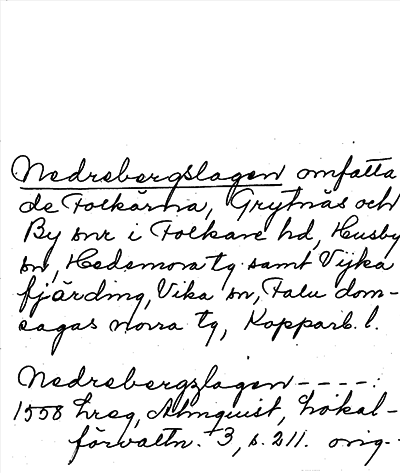 Nedrebergslagen omfatta
de Folkärna, Grytnäs och
By snr i Folkare hd, Husby
sn, Hedemora tg samt Vijka
fjärding, Vika sn, Falu dom-
sagas norra tg, Kopparb. l.
Nedrebergzlagen ----:
1558 hreg, Almquist, Lokal-
förvaltn. 3, s. 211. orig.-